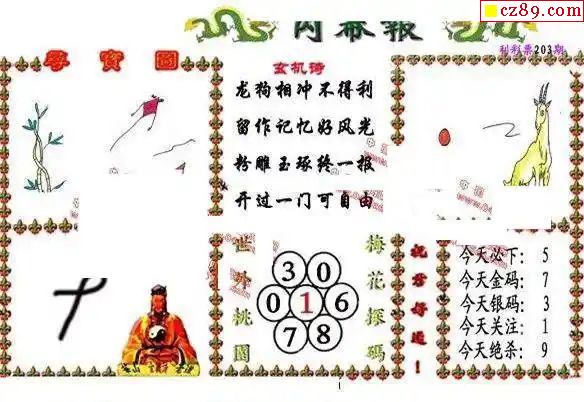 cz89.com
内幕报
利彩票203期
寻宝图
玄机诗
龙狗相冲不得利
留作记忆好风光
粉雕玉琢终一报
开过一门可自由
世外桃園
3 0
0 1 6
7 8
梅花探碼
祝君好运!
今天必下: 5
今天金码: 7
今天银码: 3
今天关注: 1
今天绝杀: 9